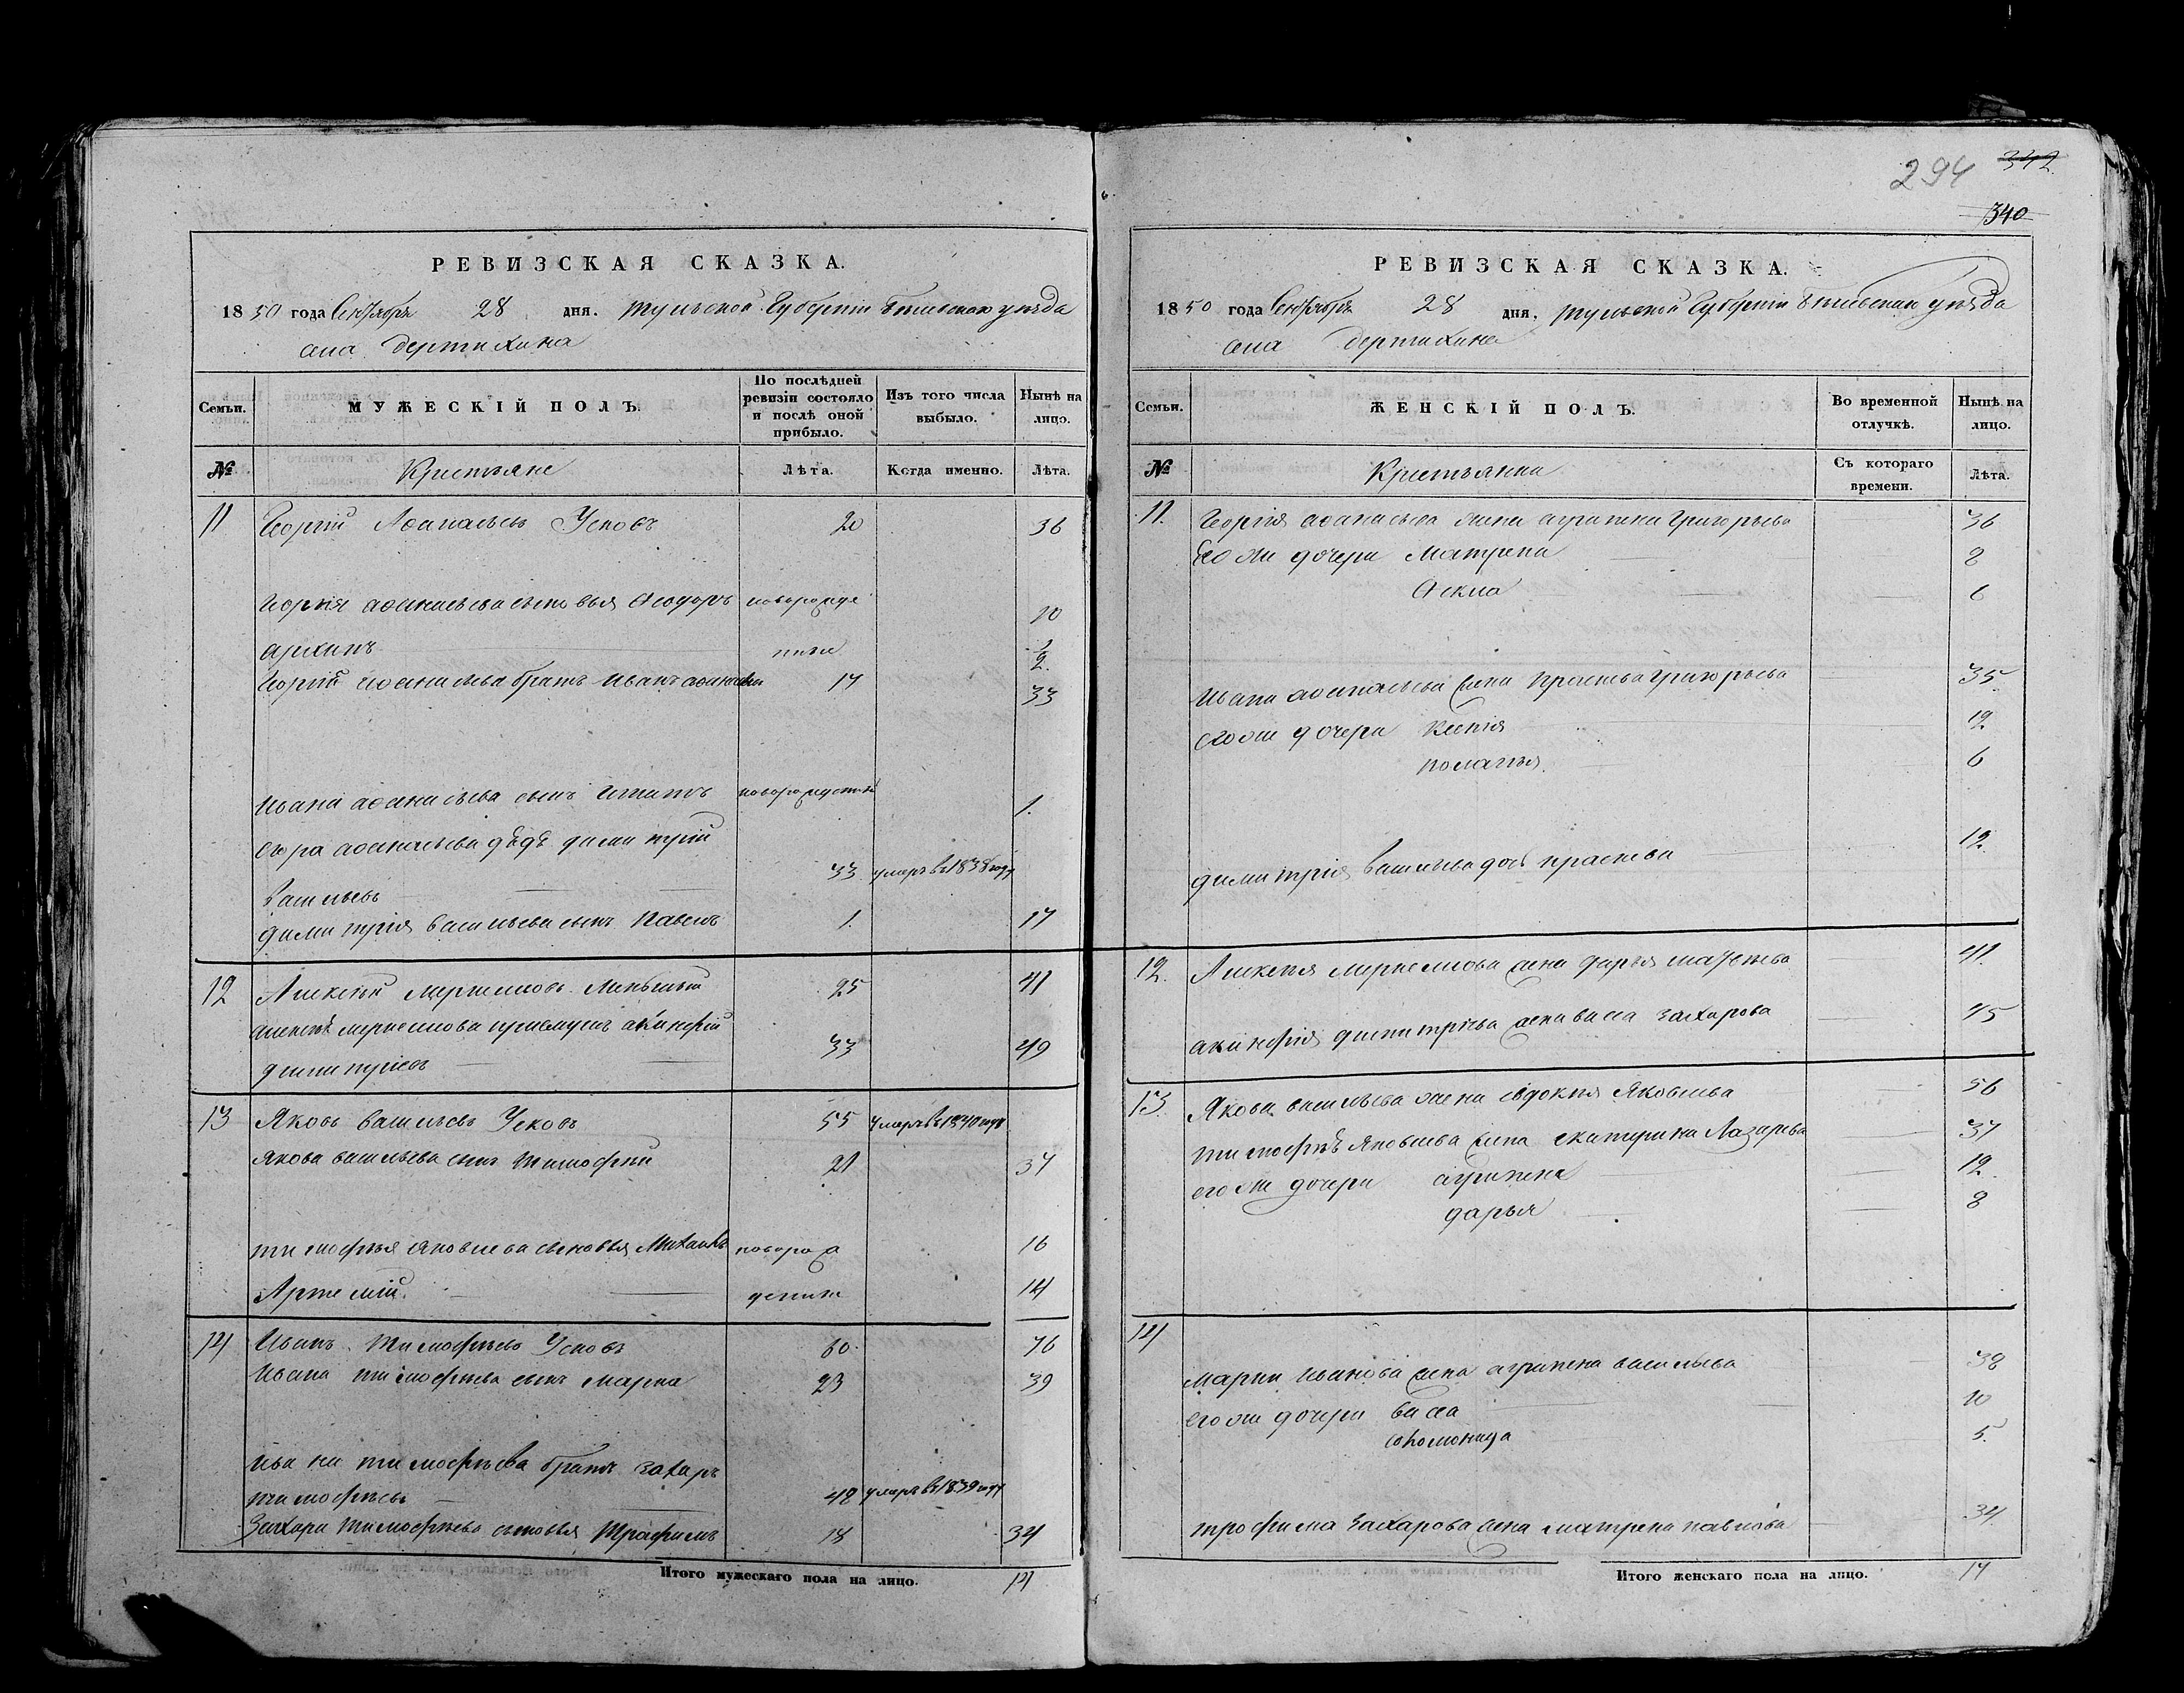 294 342
340
РЕВИЗСКАЯ СКАЗКА.
1850 года Сентября 28 дня. Тульской Губернии Бѣлевскаго уѣзда
села
Семьи. МУЖЕСКІЙ ПОЛЪ. По послѣдней ревизіи состояло и послѣ оной прибыло. Изъ того числа выбыло. Нынѣ на лицо.
№ Крестьяне Лѣта. Когда именно. Лѣта.
11 Георгій Афанасьевъ Усковъ 20 36
Георгія афанасьева сыновья Феодоръ новорожде 10
архипъ нные 2
Георгія афанасьева братъ Иванъ афанасьевъ 17 33
Ивана афанасьева сынъ новорожденный 1.
афанасьева дѣдъ димитрій
Васильевъ 33 умеръ в 1838 году
димитрія васильева сынъ Павелъ 1. 17
12 Алексѣй Меньшый 25 41
акинфій
димитріевъ 33 49
13 Яковъ Васильевъ Усковъ 55 умеръ в 1840 году
Якова васильева сынъ Тимофѣй 21 37
тимофѣя яковлева сыновья Михаилъ новорож 16
Артемій денные 14
14 Иванъ Тимофѣевъ Усковъ 60 76
Ивана тимофѣева сынъ марка 23 39
Ивана тимофѣева братъ Захаръ
тимофѣевъ 42 умеръ в 1839 году
Захара Тимофѣева сыновья Трафимъ 18 34
Итого мужескаго пола на лицо. 14
РЕВИЗСКАЯ СКАЗКА.
1850 года Сентября 28 дня. Тульской Губернии Бѣлевскаго уѣзда
села
Семьи. ЖЕНСКІЙ ПОЛЪ. Во временной отлучкѣ. Нынѣ на лицо.
№ Крестьянки Съ котораго времени. Лѣта.
11. Георгія афанасьева жена агрипена григорьева 36
Его же дочери Матрена 8
Фекла 6
Ивана афанасьева жена Прасковья григорьева 35
его же дочери Ксенія 12.
пелагея 6
димитрія васильева дочь 12.
12. Алексѣя жена дарья 41.
акинфія димитріева жена васа захарова 45
13. Якова васильева жена евдокия Яковлева 56
тимофѣя Яковлева жена екатерина Лазарева 37
его же дочери агрипена 12.
дарья 8
14
марки Иванова жена агрипена васильева 38
его же дочери васа 10
соломонида 5.
трофима Захарова жена матрена павлова 34.
Итого женскаго пола на лицо. 17